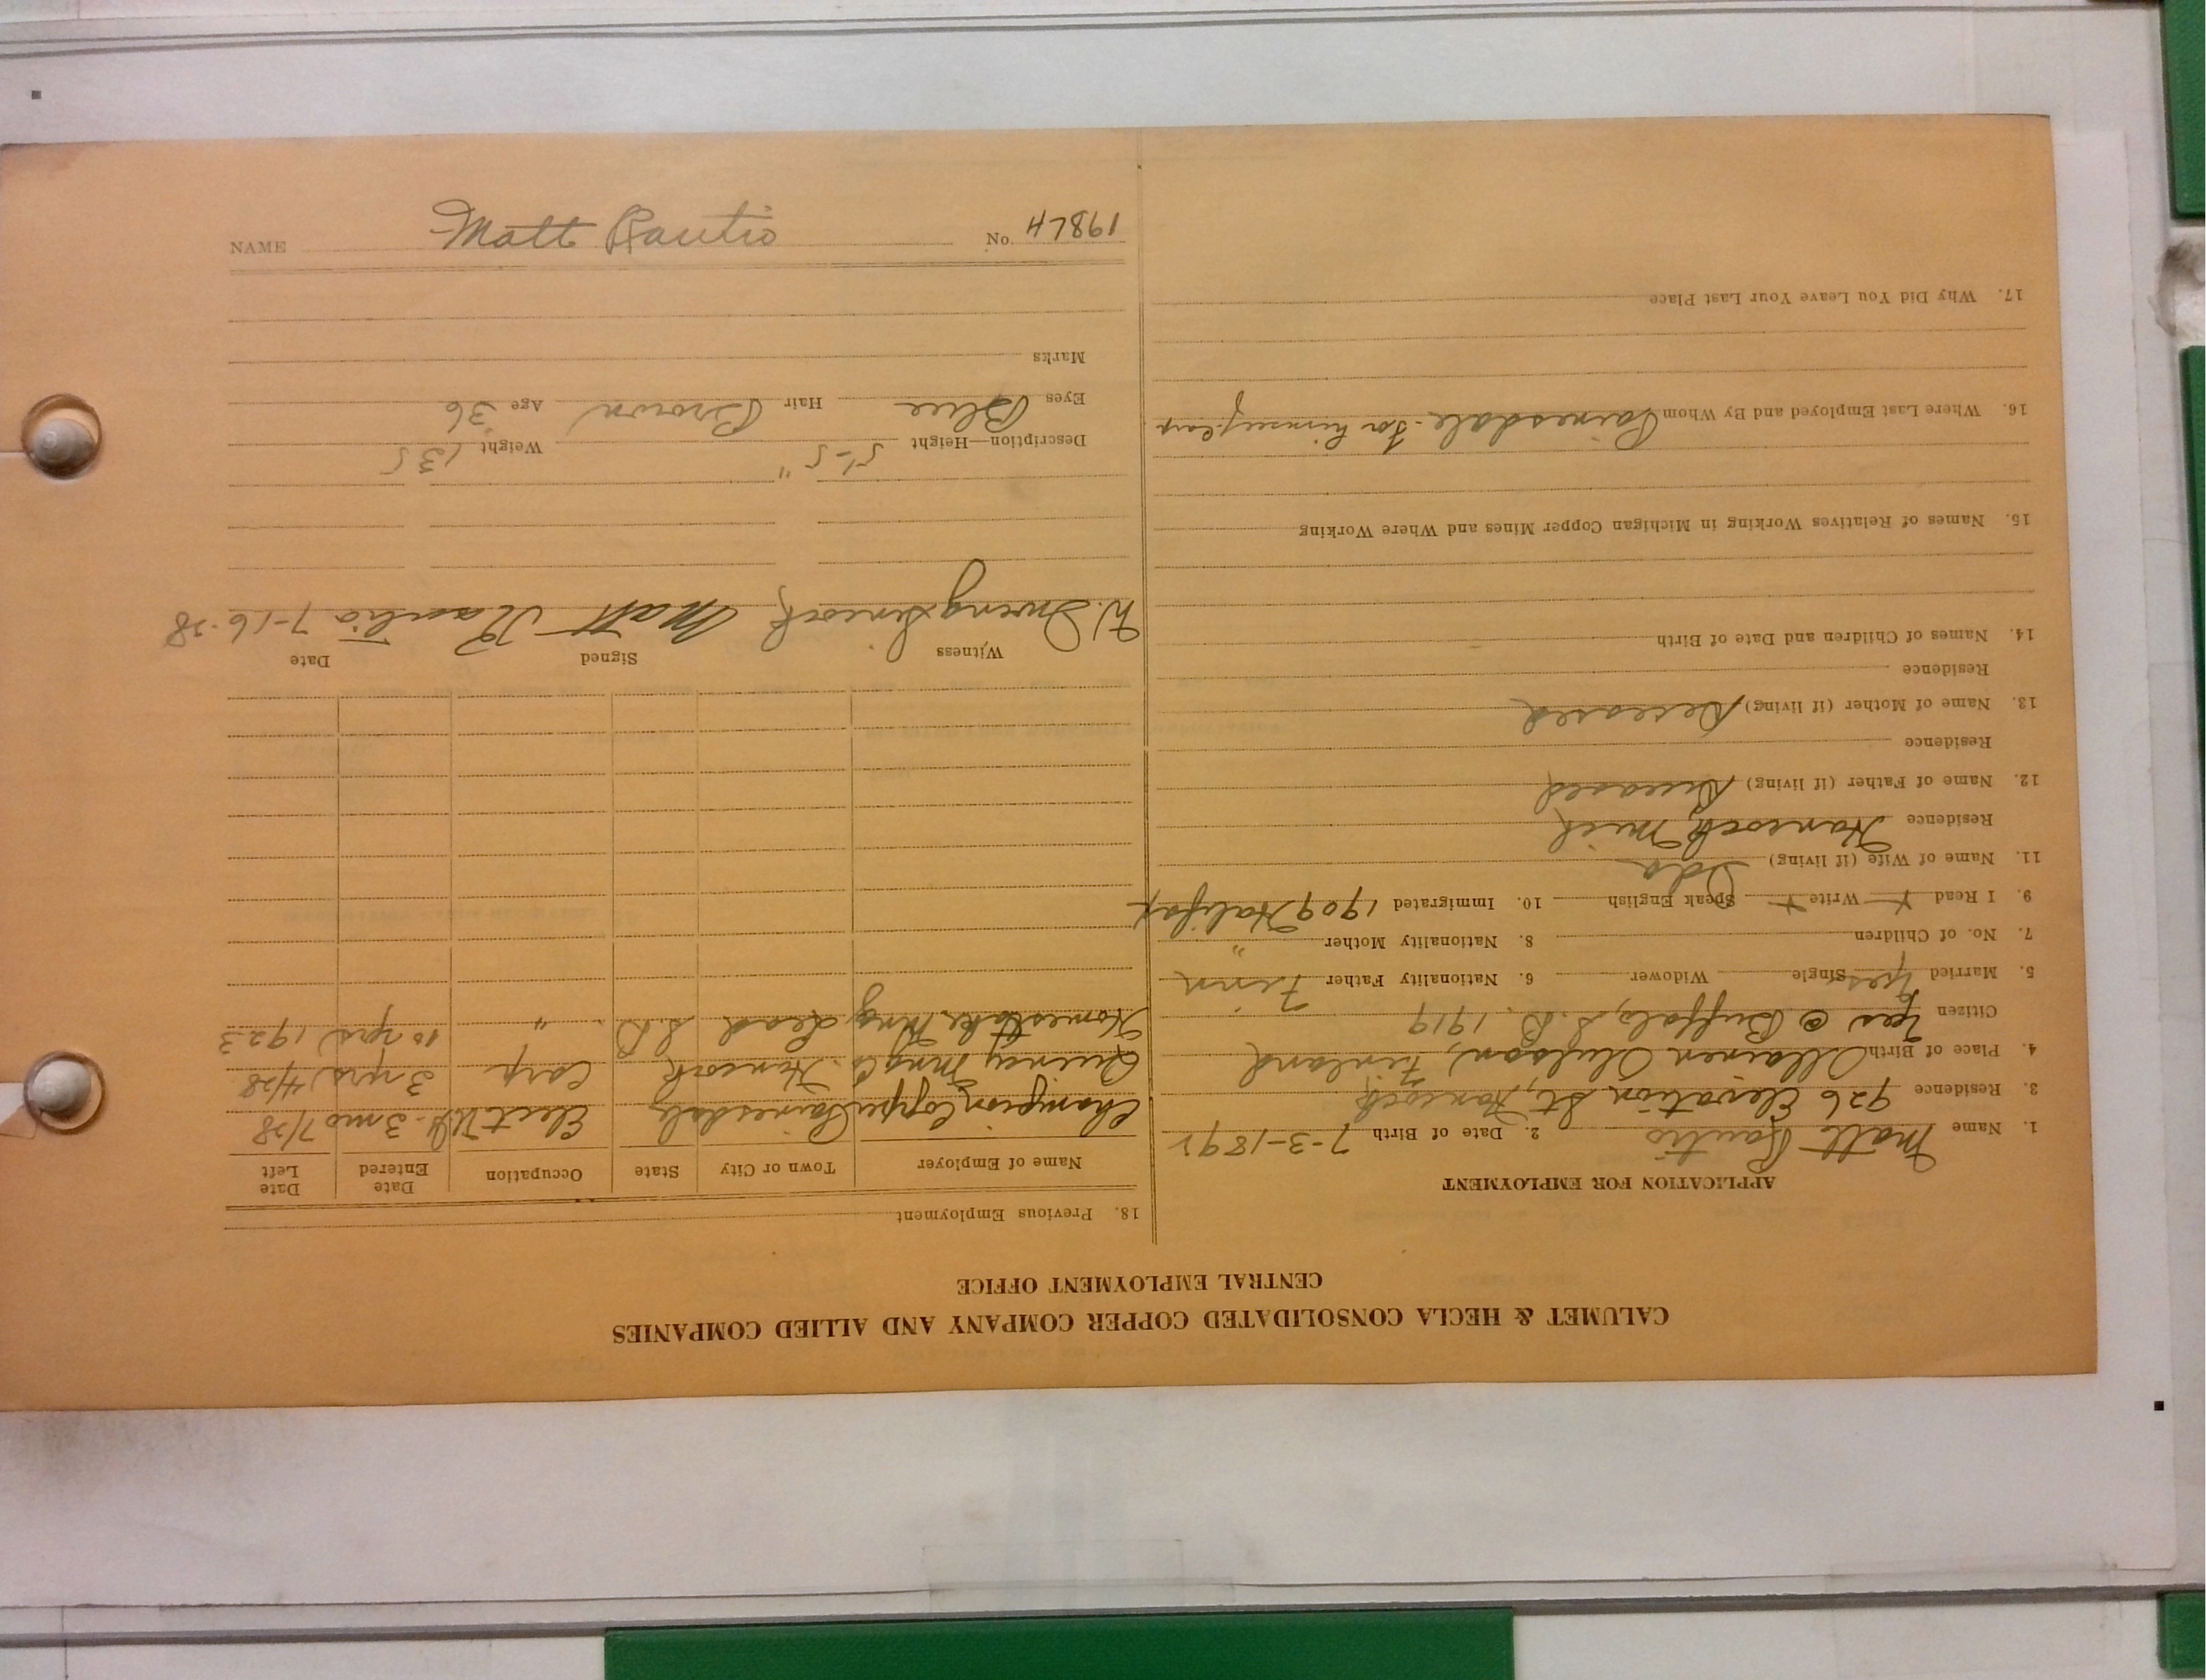 CALUMET & HECLA CONSOLIDATED COPPER COMPANY AND ALLIED COMPANIES
CENTRAL EMPLOYMENT OFFICE
APPLICATION FOR EMPLOYMENT
1. Name Matt Rautio 2. Date of Birth 7-3-1892
3. Residence 926 Elevation St, Hancock
4. Place of Birth Finland
Citizen Yes @ Buffalo, S.D. 1919
5. Married Yes Single Widower 6. Nationality Father Finn
7. No. of Children 8. Nationality Mother "
9. I Read X Write X Speak English 10. Immigrated 1909 Halifax
11. Name of Wife (if living) Ida
Residence Hancock Mich
12. Name of Father (if living) Deceased
Residence
13. Name of Mother (if living) Deceased
Residence
14. Names of Children and Date of Birth
15. Names of Relatives Working in Michigan Copper Mines and Where Working
16. Where Last Employed and By Whom Painesdale
17. Why Did You Leave Your Last Place
18. Previous Employment
Name of Employer Town or City State Occupation Date Entered Date Left
Champion Copper Painesdale Elect 3 mo 7/28
Quincy Mng Co. Hancock Carp 3 yrs 4/28
Homestake Mng Lead S.D " 10 yrs 1923
Witness Signed Date
W. Irving Matt Rautio 7-16-28
Description—Height 5'-5" Weight 135
Eyes Blue Hair Brown Age 36
Marks
NAME Matt Rautio No. 1987H